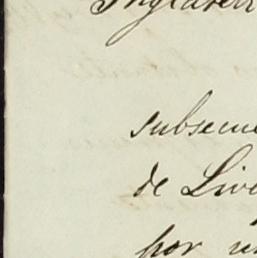 Inglaterr
subsecue
de Live
por u